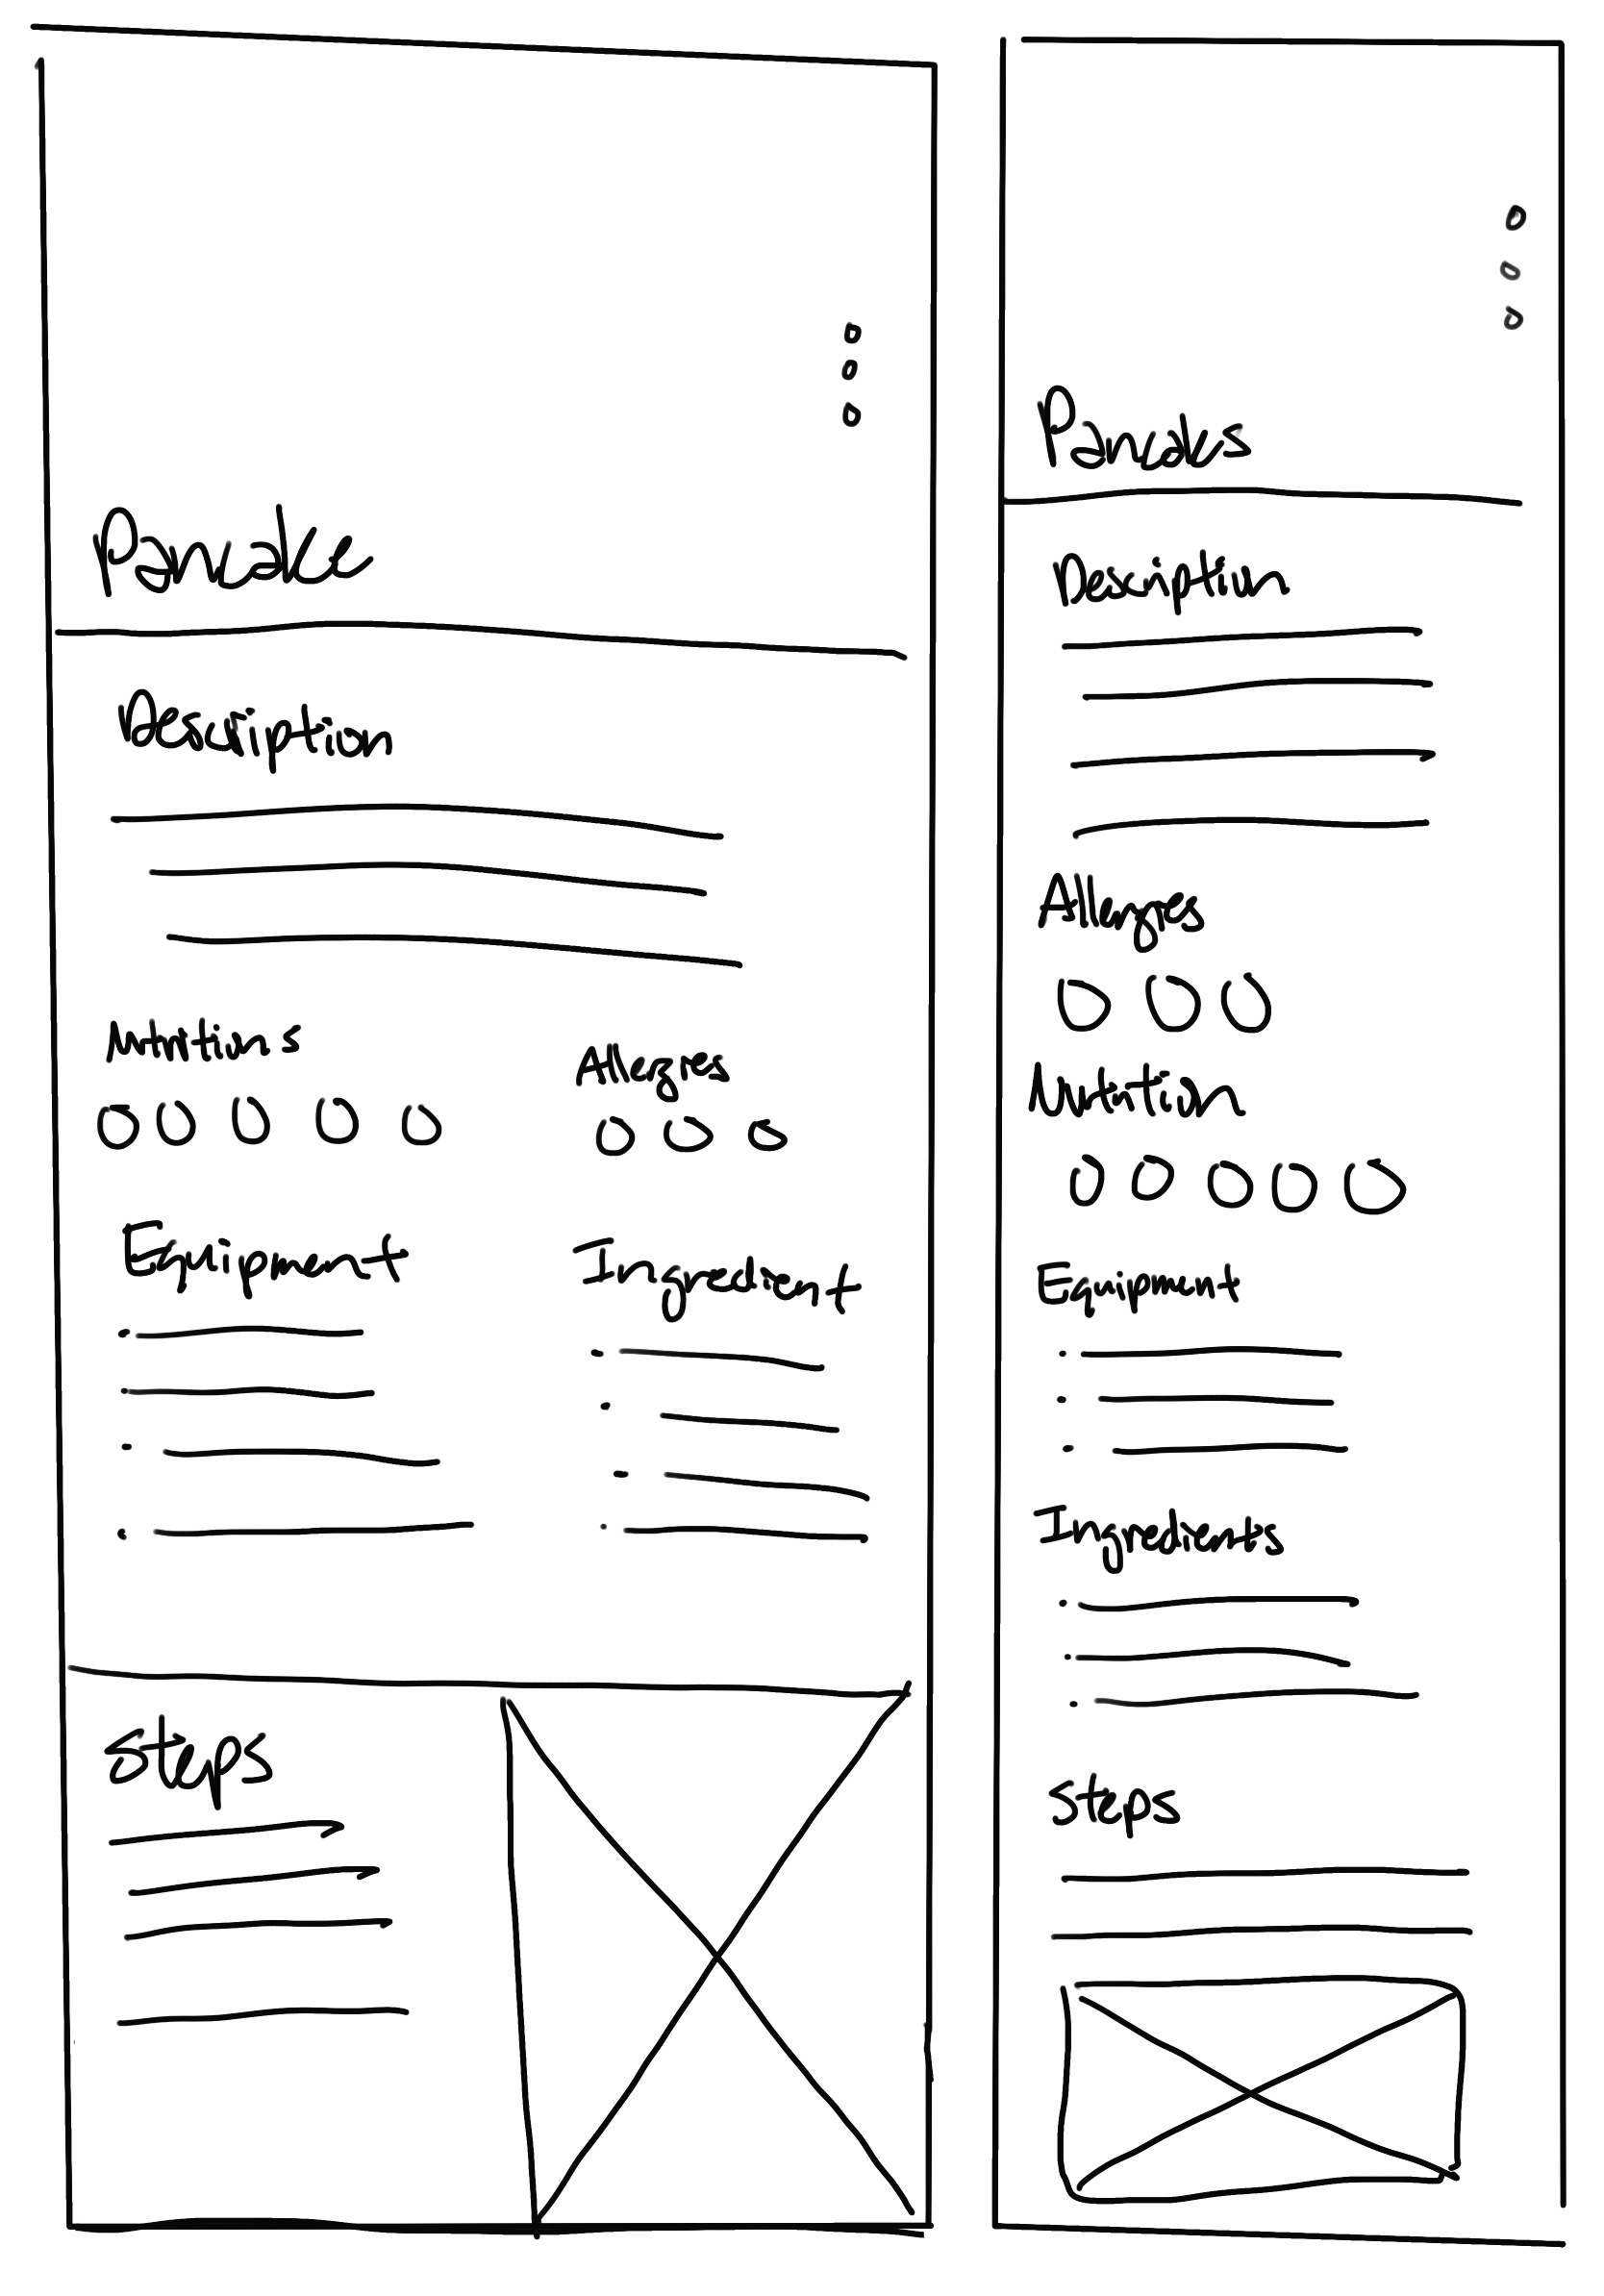 Pancake
Description
Nutritions
Allergies
Equipment
Ingredient
Steps
Pancakes
Description
Allergies
Nutrition
Equipment
Ingredients
Steps